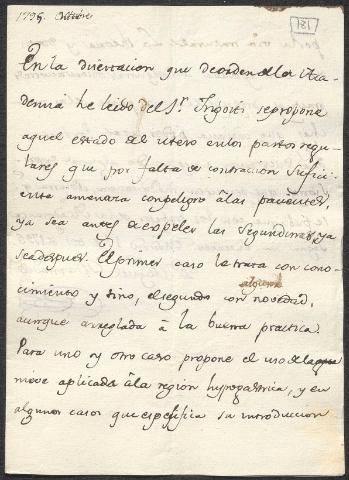 1795. Octubre
[151]
En la disertacion que de orden de la Aca-
demia he leido del Sr. se propone
aquel estado del utero en los partos regu-
lares que por falta de contracion sufici-
ente amenaza con peligro â las pacientes,
ya sea antes de expeler las segundinas, ya
sea despues. El primer caso le trata con cono-
cimiento y tino, el segundo con alguna novedad,
aunque arreglada â la buena practica.
Para uno y otro caso propone el uso de la
nieve aplicada â la region hypogastrica, y en
algunos casos que espesifica su introduccion